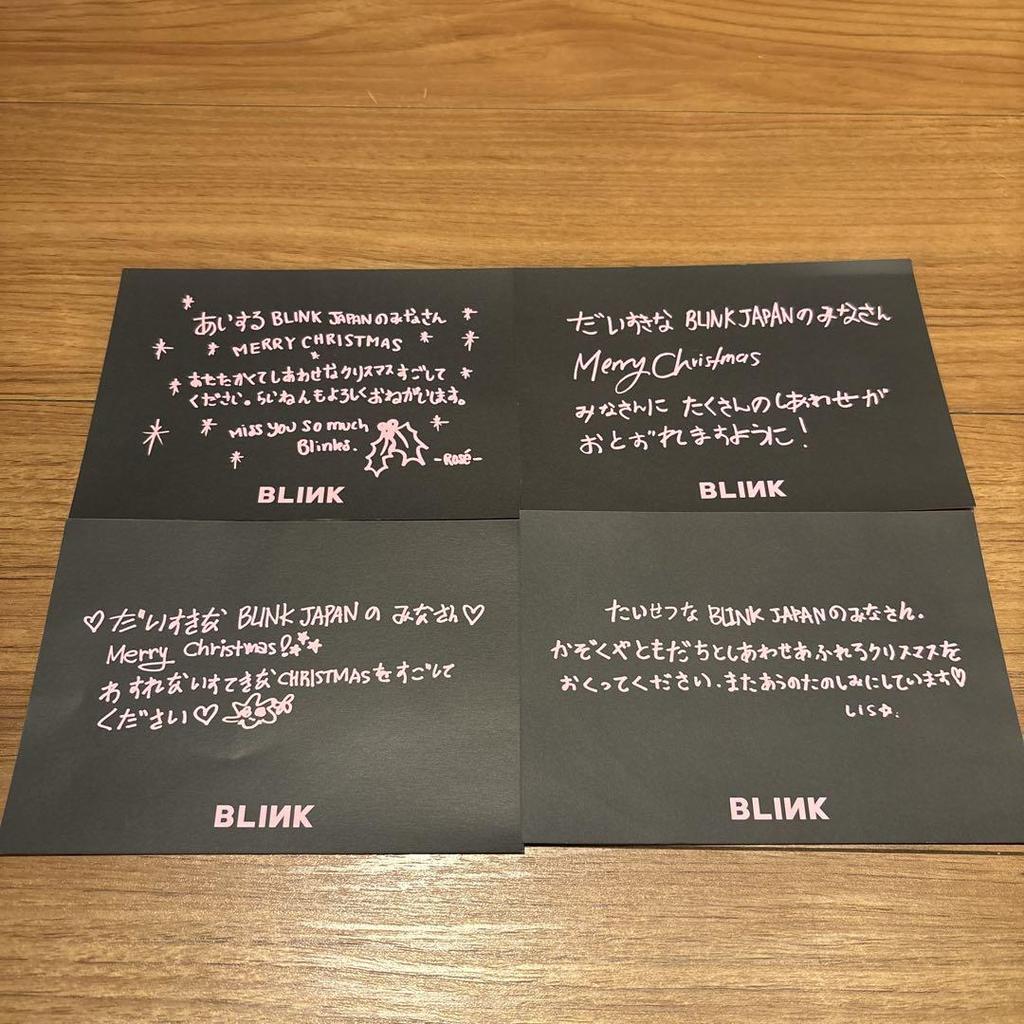 あいする BLINK JAPANのみなさん
MERRY CHRISTMAS
あたたかくてしあわせなクリスマスすごして
ください。らいねんもよろしくおねがいします。
Miss you so much
Blinks.
-Rosé-
BLIИK
だいすきな BLINK JAPANのみなさん
Merry Christmas
みなさんに たくさんのしあわせが
おとずれますように!
BLIИK
♡だいすきな BLINK JAPANの みなさん♡
Merry Christmas!
わすれないすてきなCHRISTMASをすごして
ください♡
BLIИK
たいせつな BLINK JAPANのみなさん。
かぞくやともだちとしあわせあふれるクリスマスを
おくってください。またあうのたのしみにしています♡
LIS☆.
BLIИK